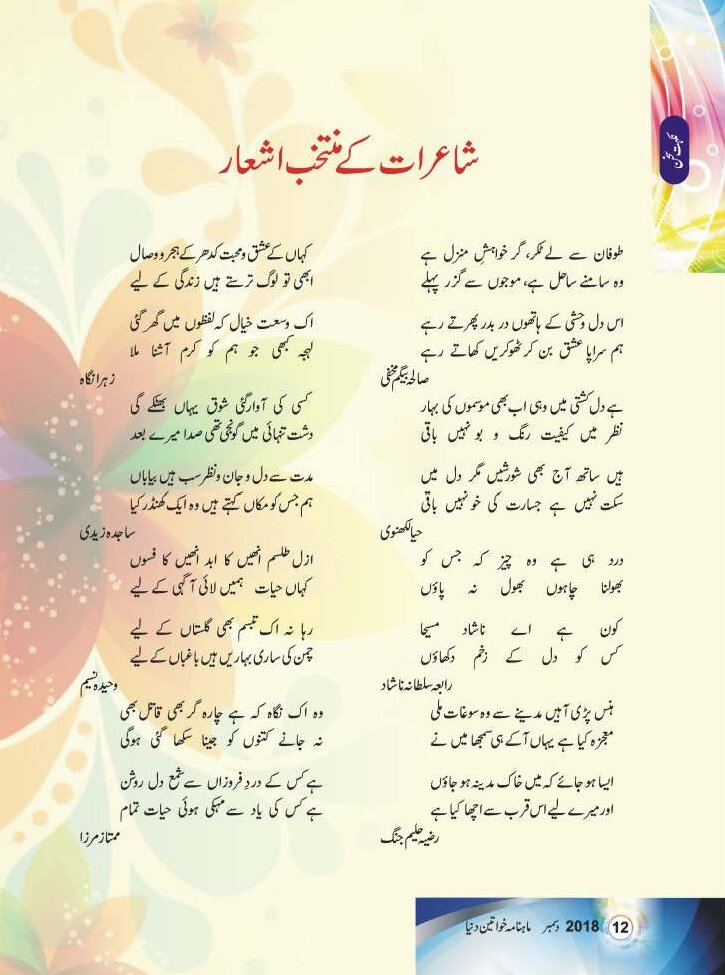 نکہت سخن
شاعرات کے منتخب اشعار
طوفان سے لے ٹکر، گر خواہشِ منزل ہے
وہ سامنے ساحل ہے، موجوں سے گزر پہلے
اس دل وحشی کے ہاتھوں در بدر پھرتے رہے
ہم سراپا عشق بن کر ٹھوکریں کھاتے رہے
صالحہ بیگم مخفی
ہے دل کشتی میں وہی اب بھی موسموں کی بہار
نظر میں کیفیت رنگ و بو نہیں باقی
ہیں ساتھ آج بھی شورشیں مگر دل میں
سکت نہیں ہے جسارت کی خو نہیں باقی
حیا لکھنوی
درد ہی ہے وہ چیز کہ جس کو
بھولنا چاہوں بھول نہ پاؤں
کون ہے اے ناشاد مسیحا
کس کو دل کے زخم دکھاؤں
رابعہ سلطانہ ناشاد
ہنس پڑی آہیں مدینے سے وہ سوغات ملی
معجزہ کیا ہے یہاں آکے ہی سمجھا میں نے
ایسا ہو جائے کہ میں خاک مدینہ ہو جاؤں
اور میرے لیے اس قرب سے اچھا کیا ہے
رضیہ حلیم جنگ
کہاں کے عشق و محبت کدھر کے ہجر و وصال
ابھی تو لوگ ترستے ہیں زندگی کے لیے
اک وسعت خیال کہ لفظوں میں گھر گئی
لہجہ کبھی جو ہم کو کرم آشنا ملا
زہرا نگاہ
کسی کی آوارگئی شوق یہاں بھٹکے گی
دشت تنہائی میں گونجی تھی صدا میرے بعد
مدت سے دل و جان و نظر سب ہیں بیاباں
ہم جس کو مکاں کہتے ہیں وہ ایک کھنڈر کیا
ساجدہ زیدی
ازل طلسم انھیں کا ابد انھیں کا فسوں
کہاں حیات ہمیں لائی آگہی کے لیے
رہا نہ اک تبسم بھی گلستاں کے لیے
چمن کی ساری بہاریں ہیں باغباں کے لیے
وحیدہ نسیم
وہ اک نگاہ کہ ہے چارہ گر بھی قاتل بھی
نہ جانے کتنوں کو جینا سکھا گئی ہوگی
ہے کس کے دردِ فروزاں سے شمع دل روشن
ہے کس کی یاد سے مہکی ہوئی حیات تمام
ممتاز مرزا
12 دسمبر 2018 ماہنامہ خواتین دنیا